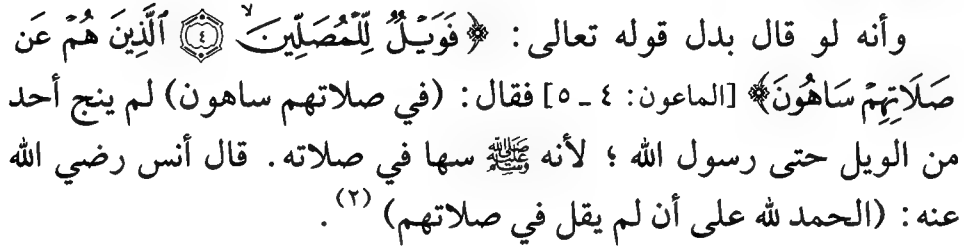 وأنه لو قال بدل قوله تعالى: ﴿فَوَيْلٌ لِّلْمُصَلِّينَ ۙ﴿٤﴾ ٱلَّذِينَ هُمْ عَن
صَلَاتِهِمْ سَاهُونَ﴾ [الماعون: ٤ ـ ٥] فقال: (في صلاتهم ساهون) لم ينج أحد
من الويل حتى رسول الله؛ لأنه ﷺ سها في صلاته. قال أنس رضي الله
عنه: (الحمد لله على أن لم يقل في صلاتهم) (٢).